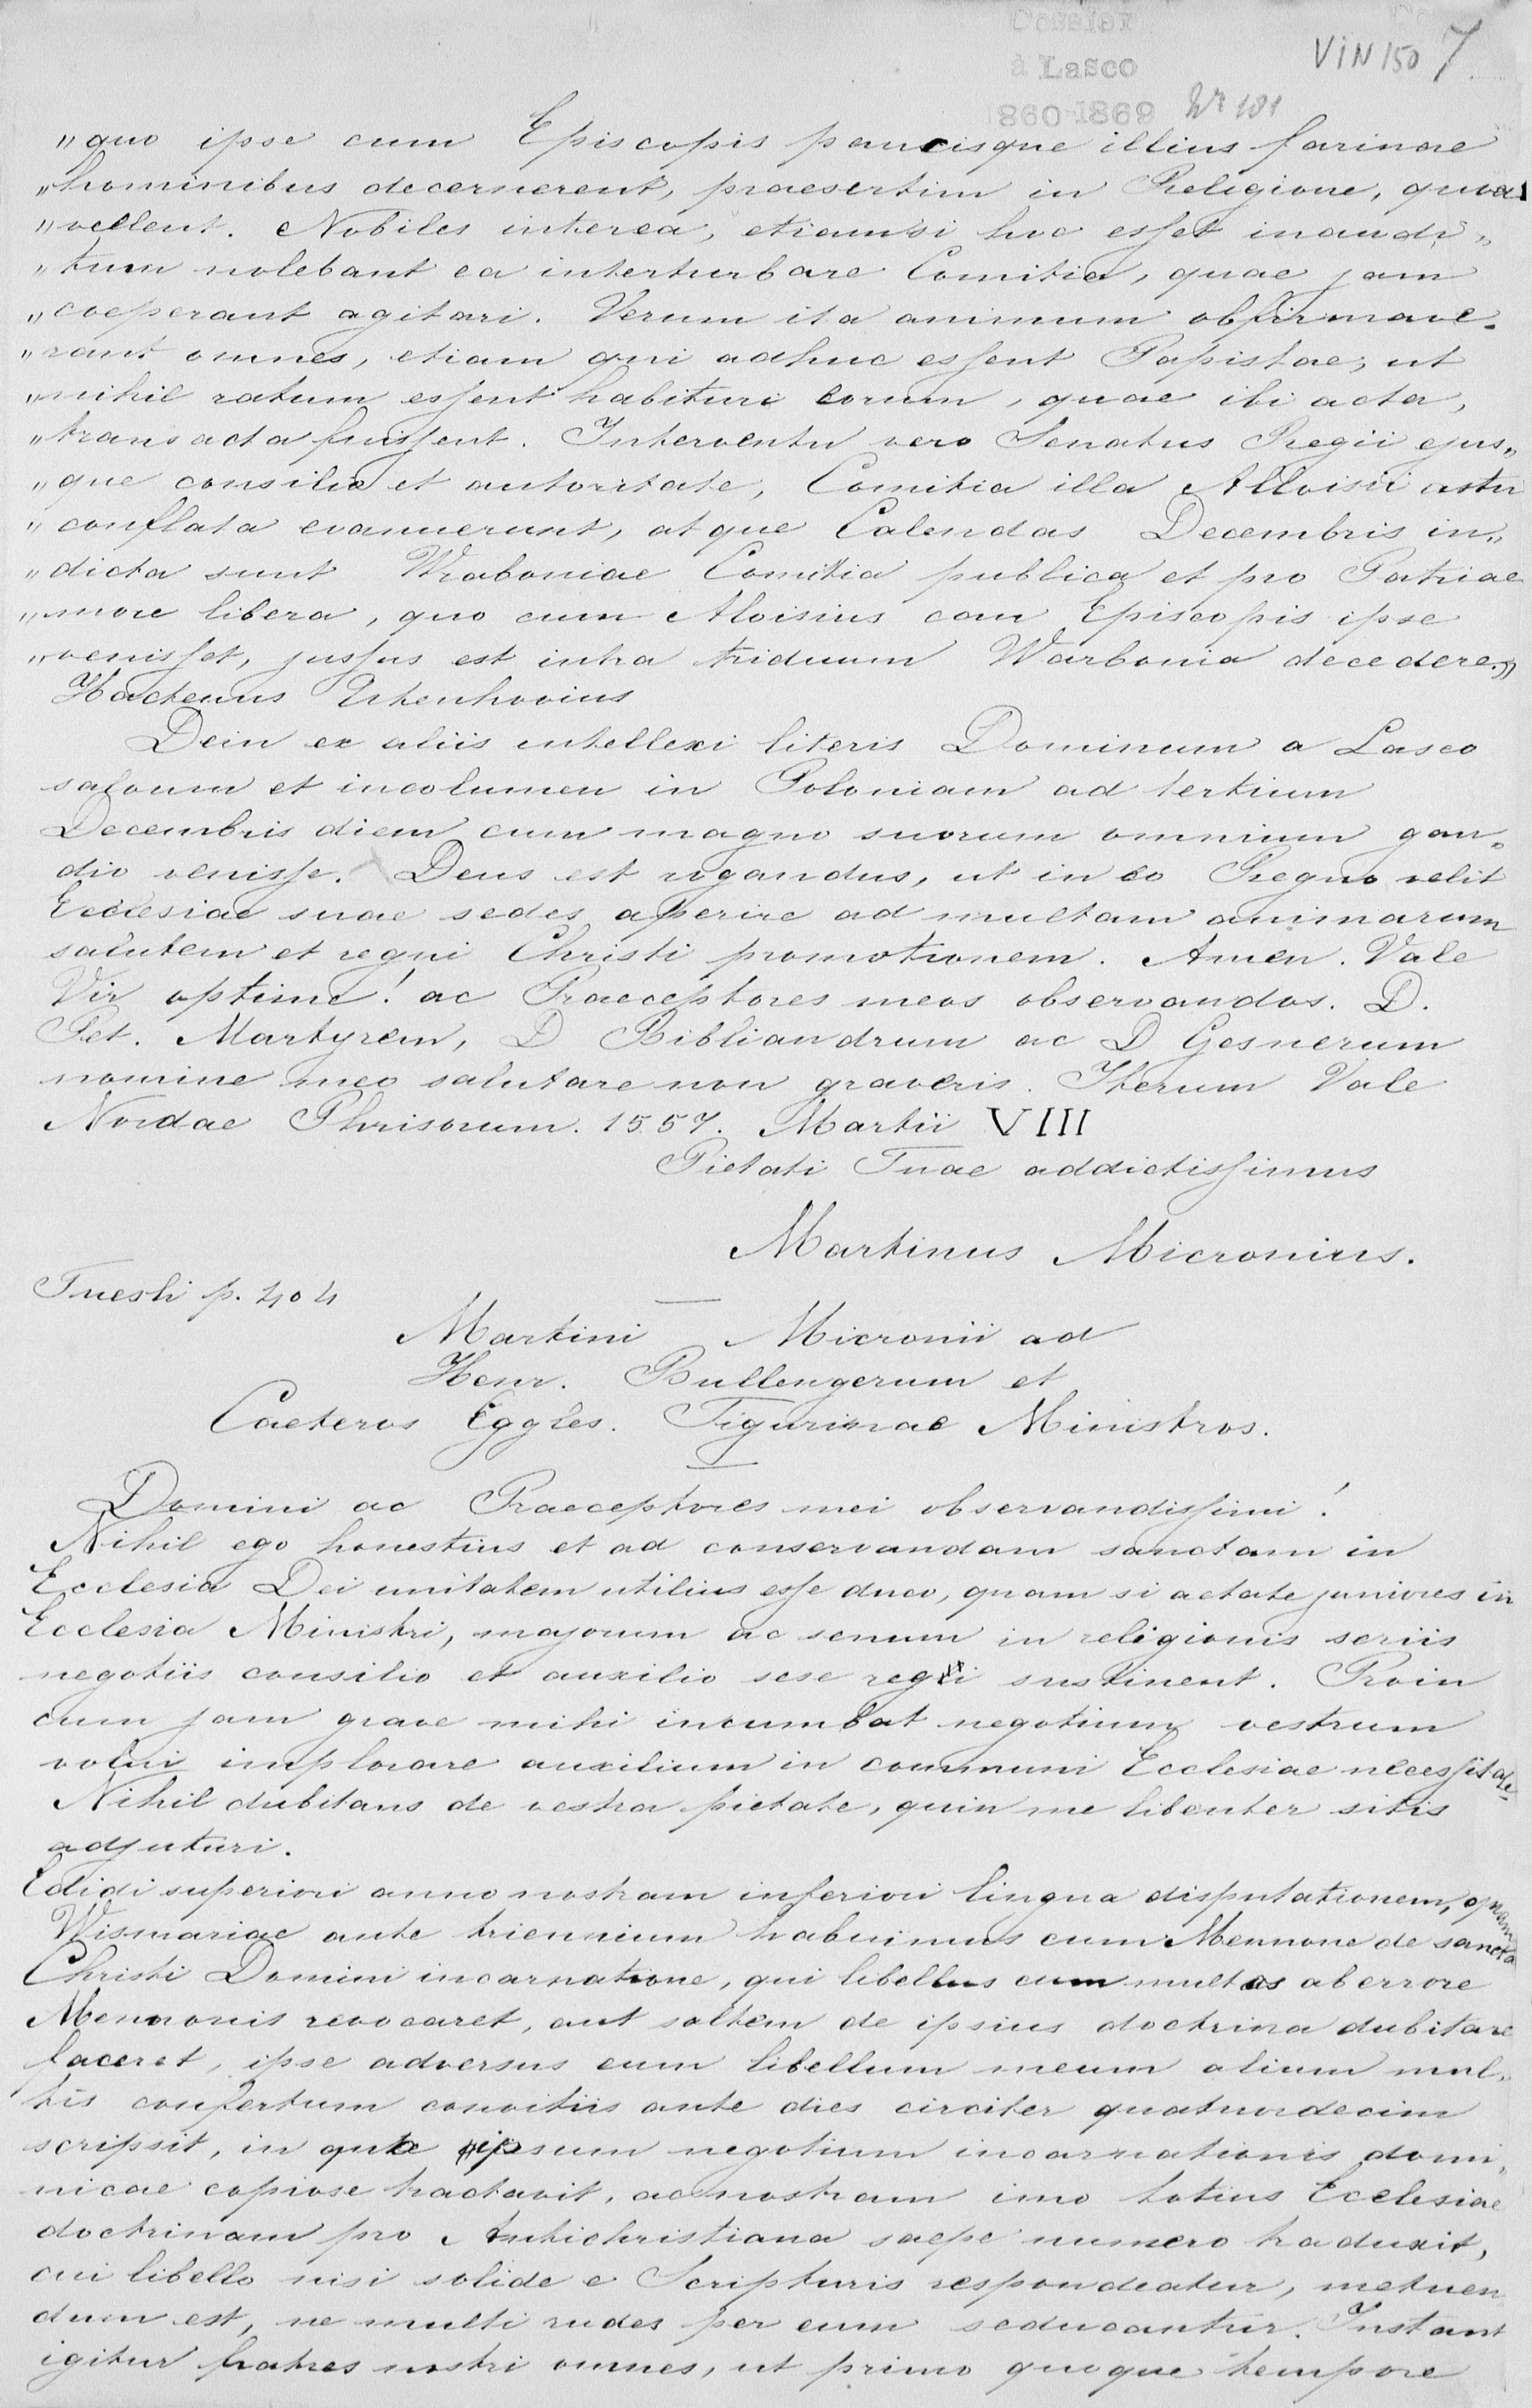 Dossier
à Lasco
1860-1869
Nr 101
VIN 150 7
„quo ipse cum Episcopis paucisque illius farinae
„hominibus decernerent, praesertim in Religione, quae
„vellent. Nobiles interea, etiamsi hoc esset inaudi„
„tum nolebant ea interturbare Comitia, quae jam
„coeperant agitari. Verum ita animum obfirmave„
„rant omnes, etiam qui adhuc essent Papistae, ut
„nihil ratum essent habituri eorum, quae ibi acta,
„transacta fuissent. Interventu vero Senatus Regii ejus„
„que consilio et autoritate, Comitia illa Alloisii astu
„conflata evanuerunt, atque Calendas Decembris in„
„dicta sunt Wraboniae Comitia publica et pro Patriae
„more libera, quo cum Aloisius cum Episcopis ipse
„venisset, jussus est intra triduum Warbonia decedere.„
Hactenus Utenhovius
Dein ex aliis intellexi literis Dominum a Lasco
salvum et incolumen in Poloniam ad tertium
Decembris diem cum magno suorum omnium gau„
dio venisse. Deus est rogandus, ut in eo Regno velit
Ecclesiae suae sedes aperire ad multam animarum
salutem et regni Christi promotionem. Amen. Vale
Vir optime! ac Praeceptores meos observandos. D.
Pet. Martyrem, D Bibliandrum ac D Gesnerum
nomine meo salutare non graveris. Iterum Vale
Nordae Phrisorum. 1557. Martii VIII
Pietati Tuae addictissimus
Martinus Micronius.
Fuesli p. 404
Martini Micronii ad
Henr. Bullengerum et
Caeteros Eggles. Tigurinae Ministros.
Domini ac Praeceptores mei observandissimi!
Nihil ego honestius et ad conservandam sanctam in
Ecclesia Dei unitatem utilius esse duco, quam si aetate juniores in
Ecclesia Ministri, majorum ac senum in religionis seriis
negotiis consilio et auxilio sese regi sustinent. Proin
cum jam grave mihi incumbat negotium vestrum
volui implorare auxilium in communi Ecclesiae necessitate.
Nihil dubitans de vestra pietate, quin me libenter sitis
adjuturi.
Edidi superiori anno nostram inferiori lingua disputationem, quam
Wismariae ante triennium habuimus cum Mennone de sancta
Christi Domini incarnatione, qui libellus cum multos ab errore
Mennonis revocaret, aut saltem de ipsius doctrina dubitare
faceret, ipse adversus eum libellum meum alium mul„
tis confertum convitiis ante dies circiter quatuordecim
scripsit, in quo ipsum negotium incarnationis domi„
nicae copiose tractavit, ac nostram imo totius Ecclesiae
doctrinam pro Antichristiana saepe numero traduxit,
cui libello nisi solide e Scripturis respondeatur, metuen
dum est, ne multi rudes per eum seducantur. Instant
igitur fratres nostri omnes, ut primo quoque tempore